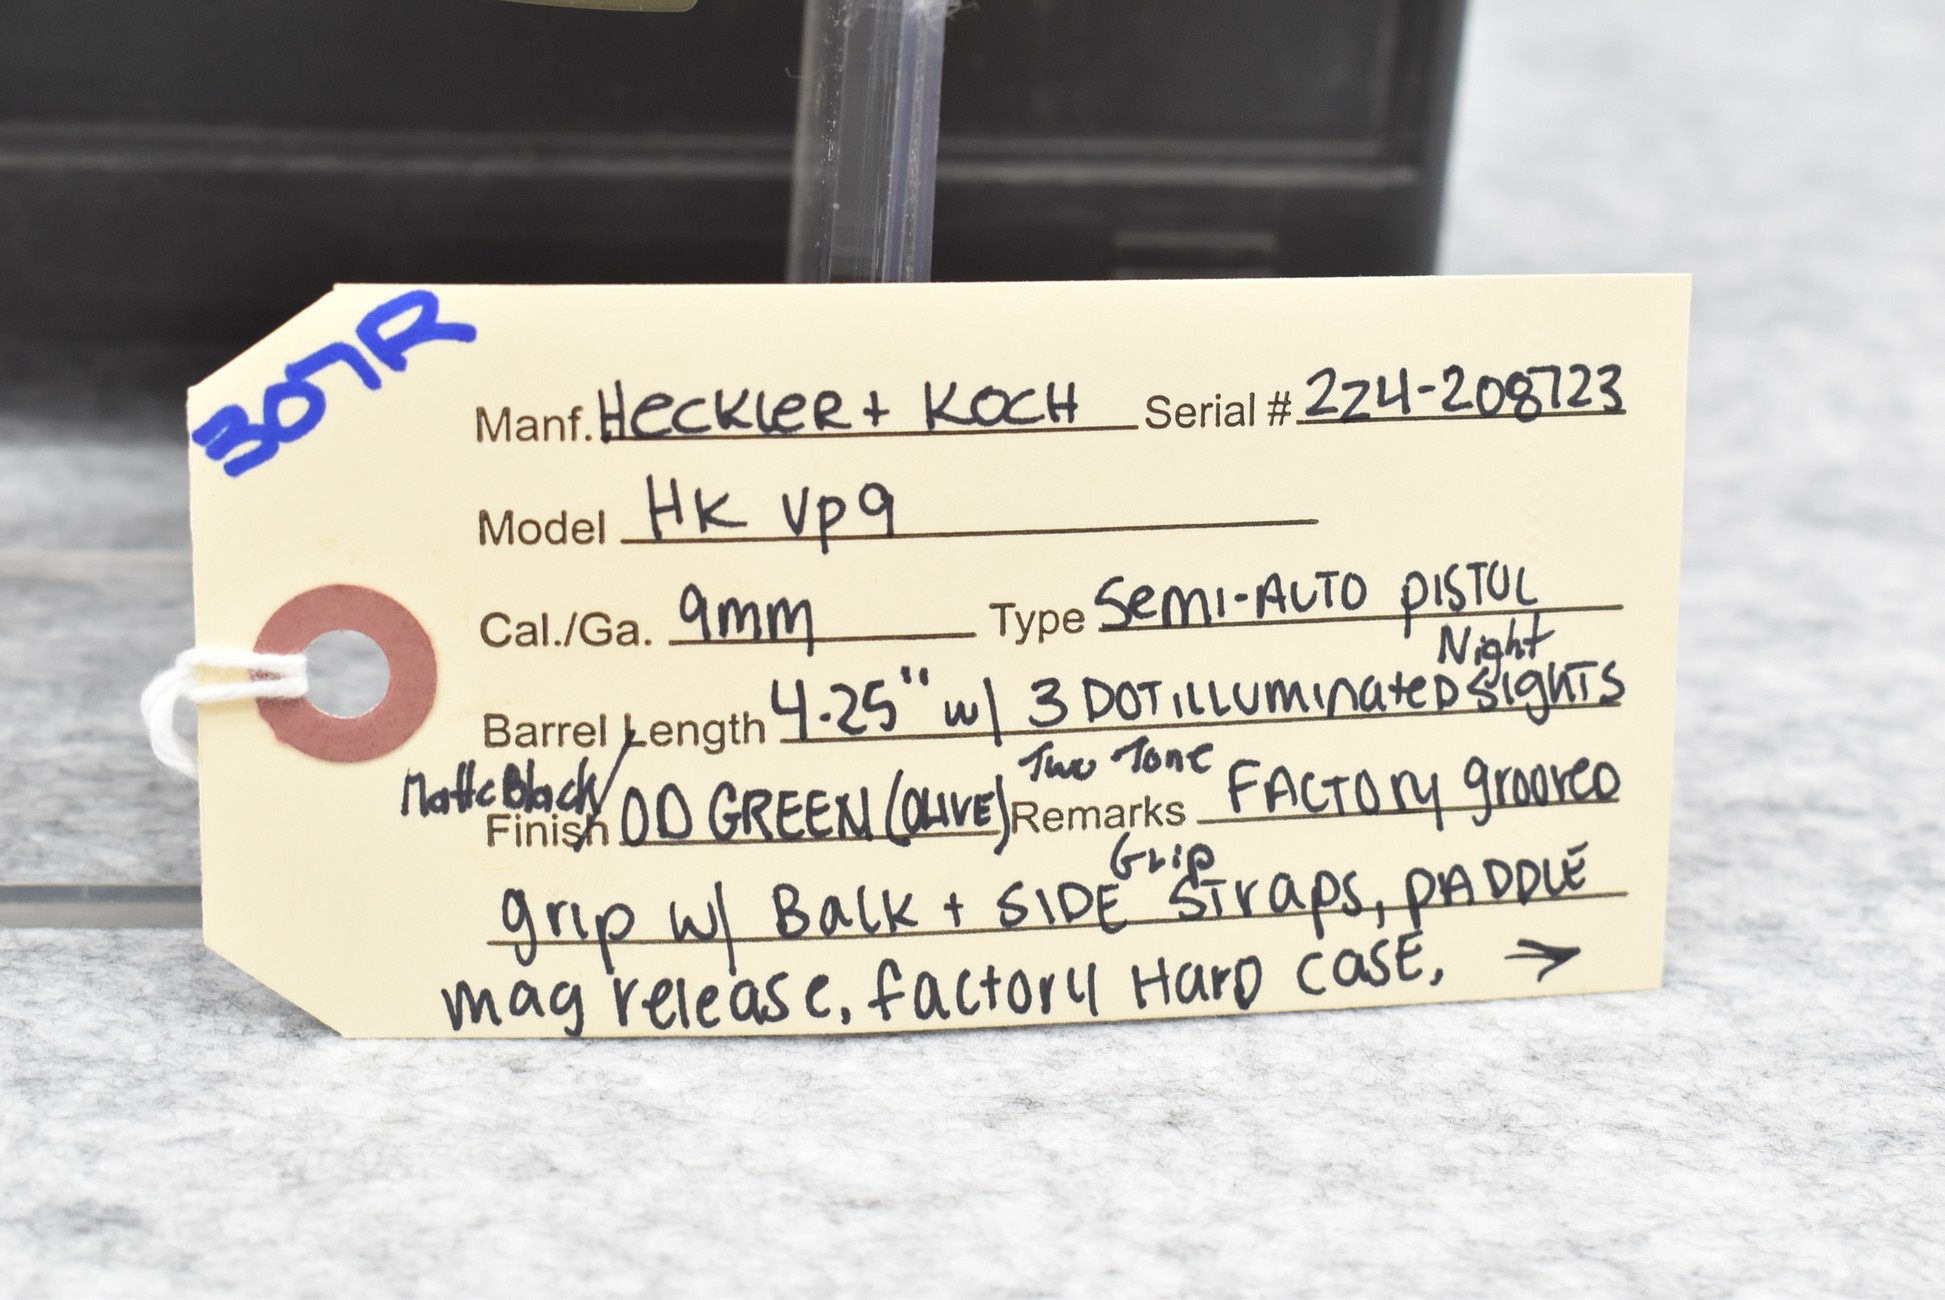 307R
Manf. Heckler + Koch Serial # 224-208723
Model HK Vp9
Cal./Ga. 9mm Type Semi-Auto pistol
Night
Barrel Length 4.25" w/ 3 DOT illuminated Sights
Matte Black/ Two Tone
Finish OD GREEN (OLIVE) Remarks Factory grooved
Grip
grip w/ Back + SIDE Straps, paddle
mag release, factory Hard case, →